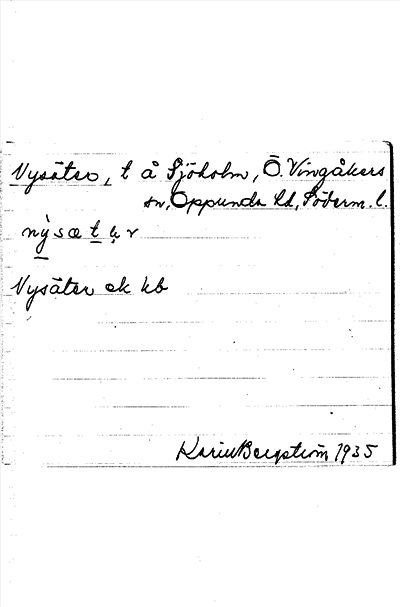 Nysäter, t å Sjöholm, Ö. Vingåkers
sn, Oppunda hd, Söderm. l.
nỳsætạr
Nysäter ek kb
Karin Bergström 1935